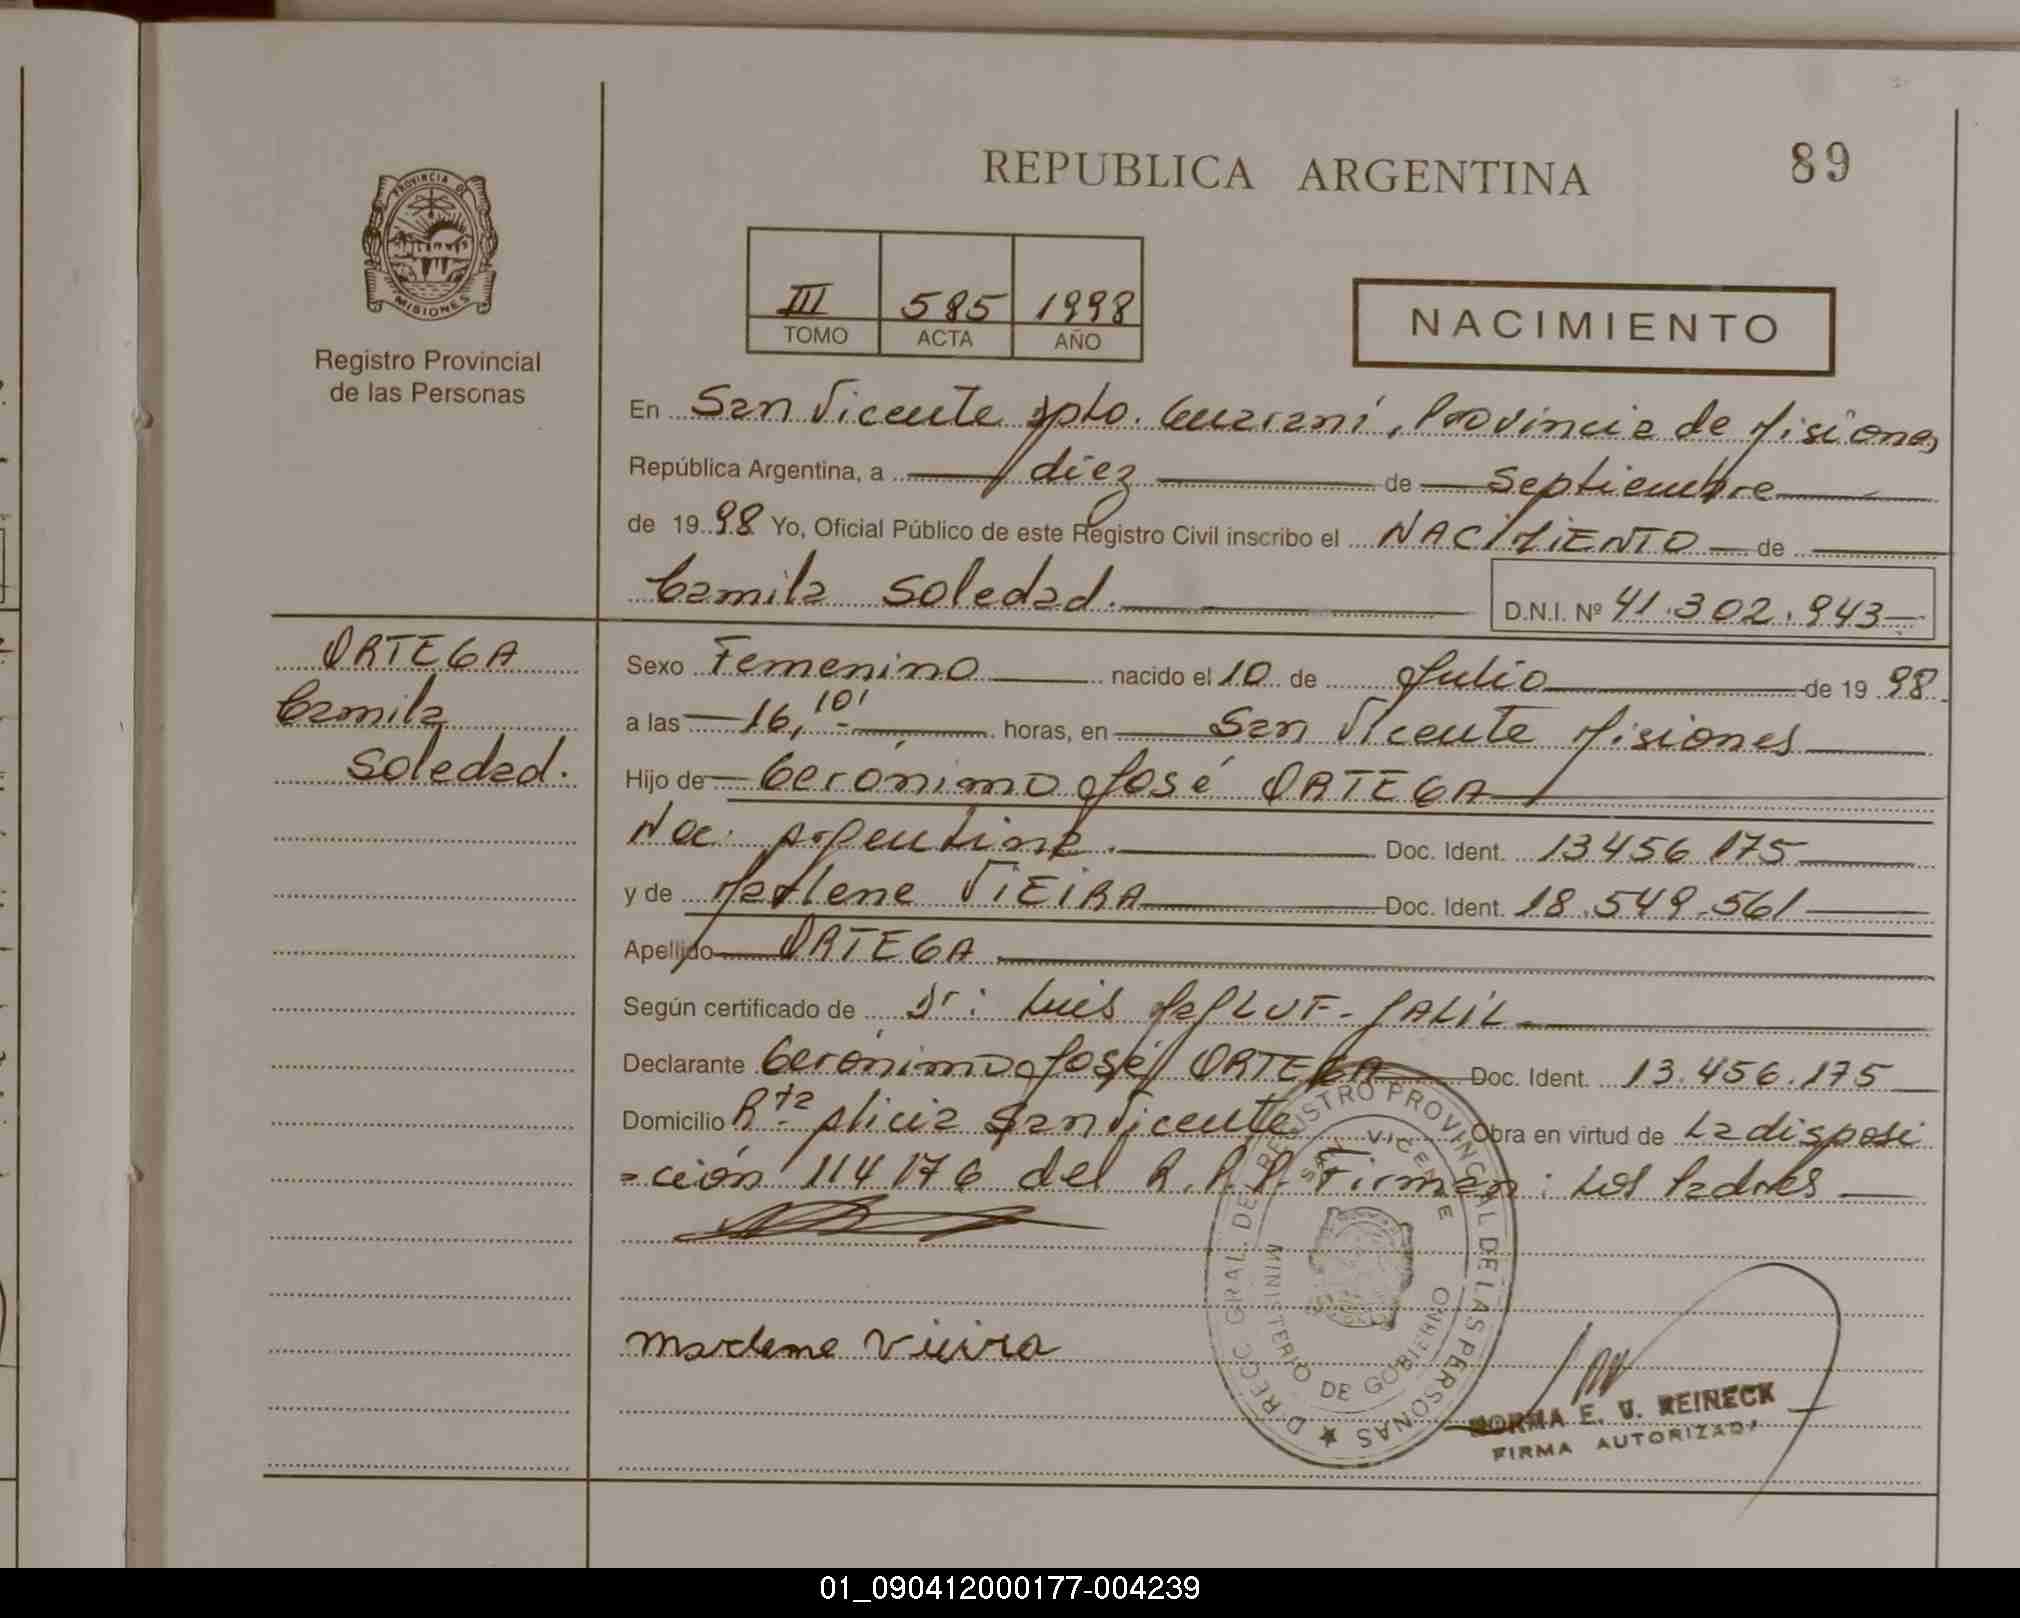 REPUBLICA ARGENTINA
89
PROVINCIA DE
MISIONES
Registro Provincial
de las Personas
III 585 1998
TOMO ACTA AÑO
NACIMIENTO
En San Vicente Dpto. Guaraní, Provincia de Misiones
República Argentina, a diez de Septiembre
de 1998 Yo, Oficial Público de este Registro Civil inscribo el NACIMIENTO de
Camila Soledad. D.N.I. Nº 41.302.943
ORTEGA
Camila
Soledad.
Sexo Femenino nacido el 10 de Julio de 1998
a las 16,10' horas, en San Vicente Misiones
Hijo de Gerónimo José ORTEGA
Nac. Argentina. Doc. Ident. 13.456.175
y de Marlene VIEIRA Doc. Ident. 18.549.561
Apellido ORTEGA
Según certificado de Dr: Luis JALIL
Declarante Gerónimo José ORTEGA Doc. Ident. 13.456.175
Domicilio Rta Alicia San Vicente Obra en virtud de La disposi
=ción 114176 del R.P.P. Firman: Los Padres
Marlene Vieira
DIRECC. GRAL. DEL REGISTRO PROVINCIAL DE LAS PERSONAS
SAN VICENTE
MINISTERIO DE GOBIERNO
NORMA E. V. REINECK
FIRMA AUTORIZADA
01_090412000177-004239